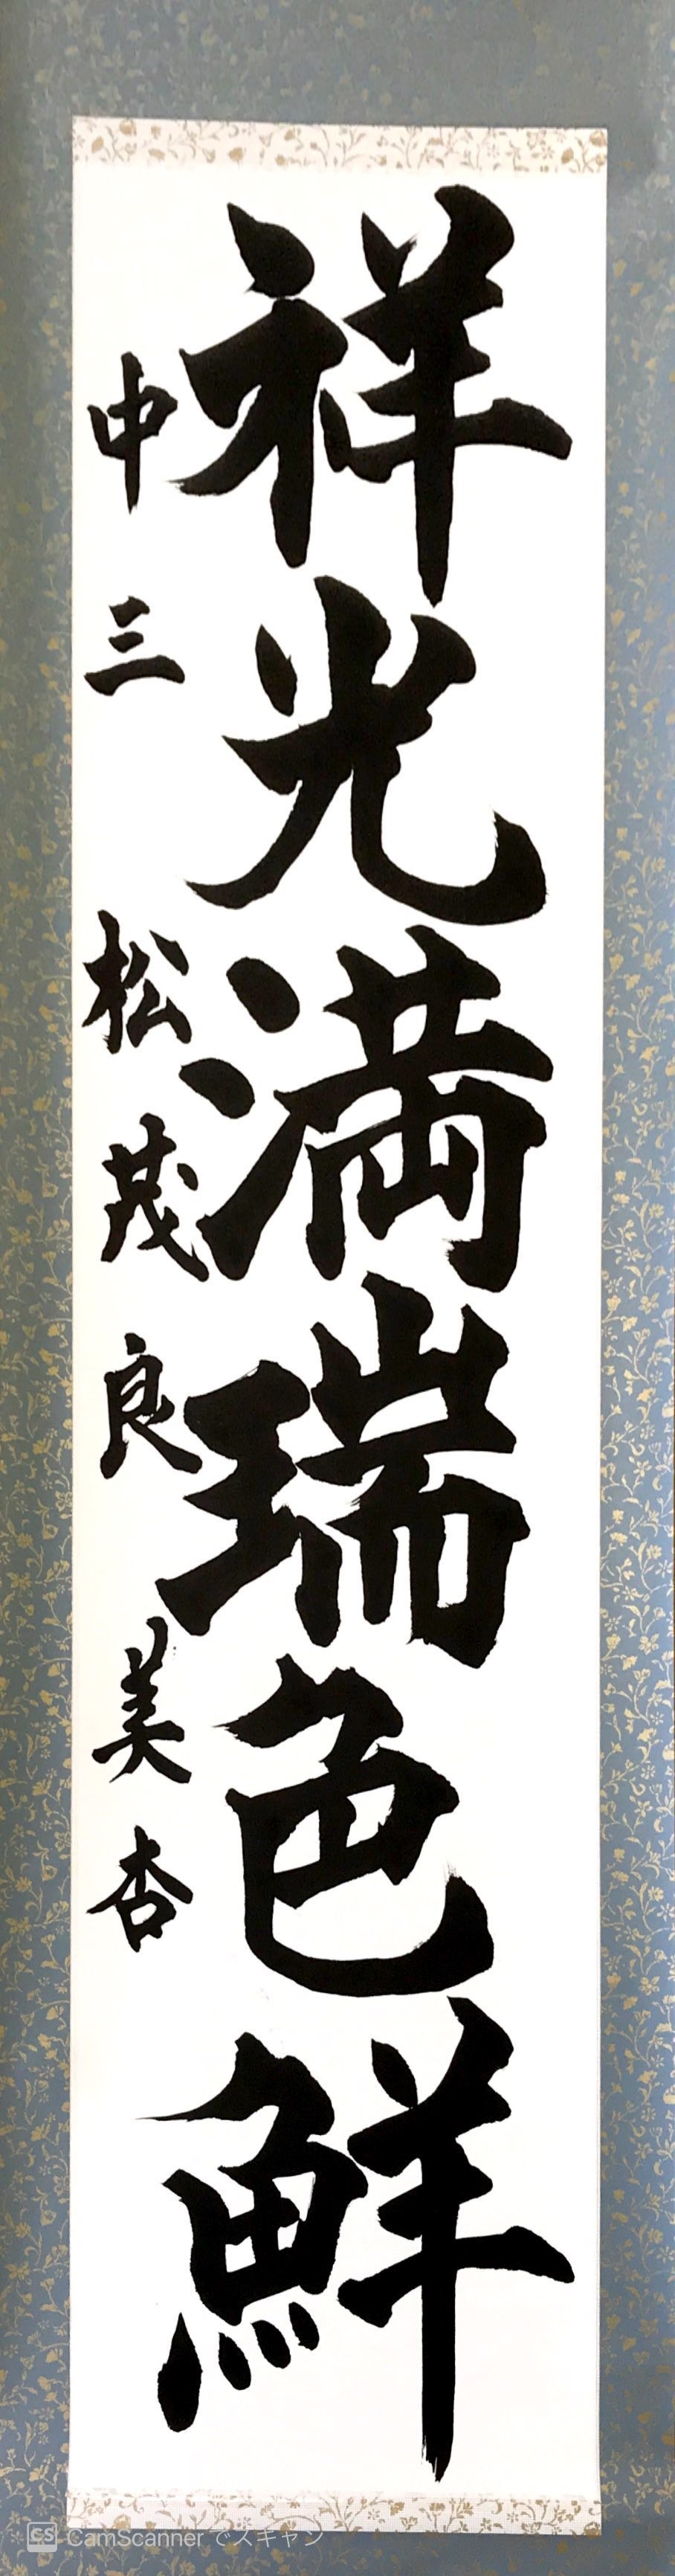 祥光満瑞色鮮
中三 松茂良 美杏
CS CamScannerでスキャン